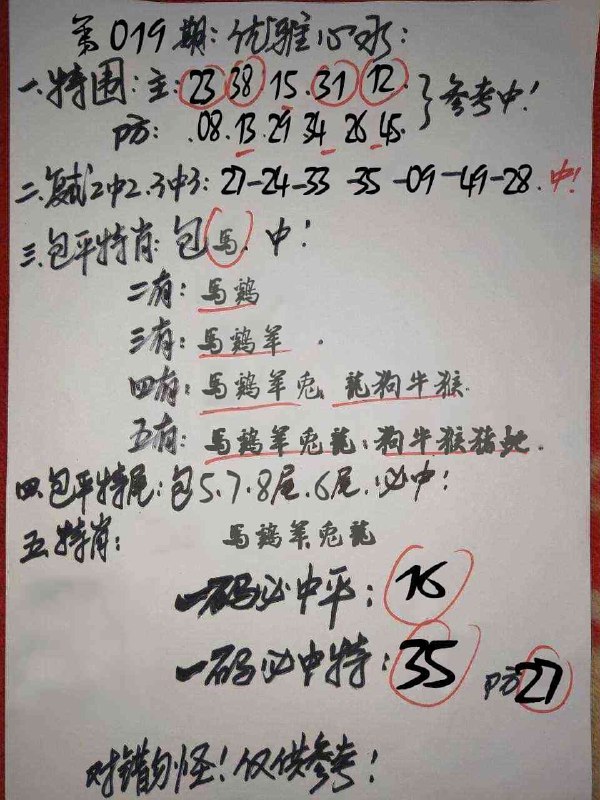 第019期:优雅心水:
一.特围:主:23 38 15.31 12.}参考中!
防:.08.13.29 34 26 45.
二.复试2中2.3中3:27-24-33-35-09-49-28.中!
三.包平特肖:包馬.中!
二有:馬鷄
三有:馬鷄羊.
四有:馬鷄羊兔.龍狗牛猴.
五有:馬鷄羊兔龍:狗牛猴猪蛇.
四.包平特尾:包5.7.8尾.6尾.必中!
五.特肖:馬鷄羊兔龍
一码必中平:16
一码必中特:35 防27
对错勿怪!仅供参考!